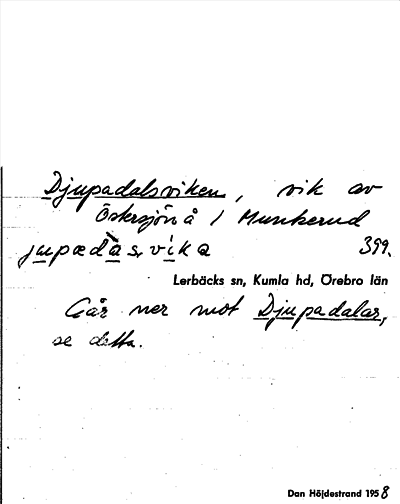 Djupadalsviken, vik av
Östersjön å / Munkerud
jupædàs,vika 399.
Lerbäcks sn, Kumla hd, Örebro län
Går ner mot Djupadalar,
se detta.
Dan Höjdestrand 1958